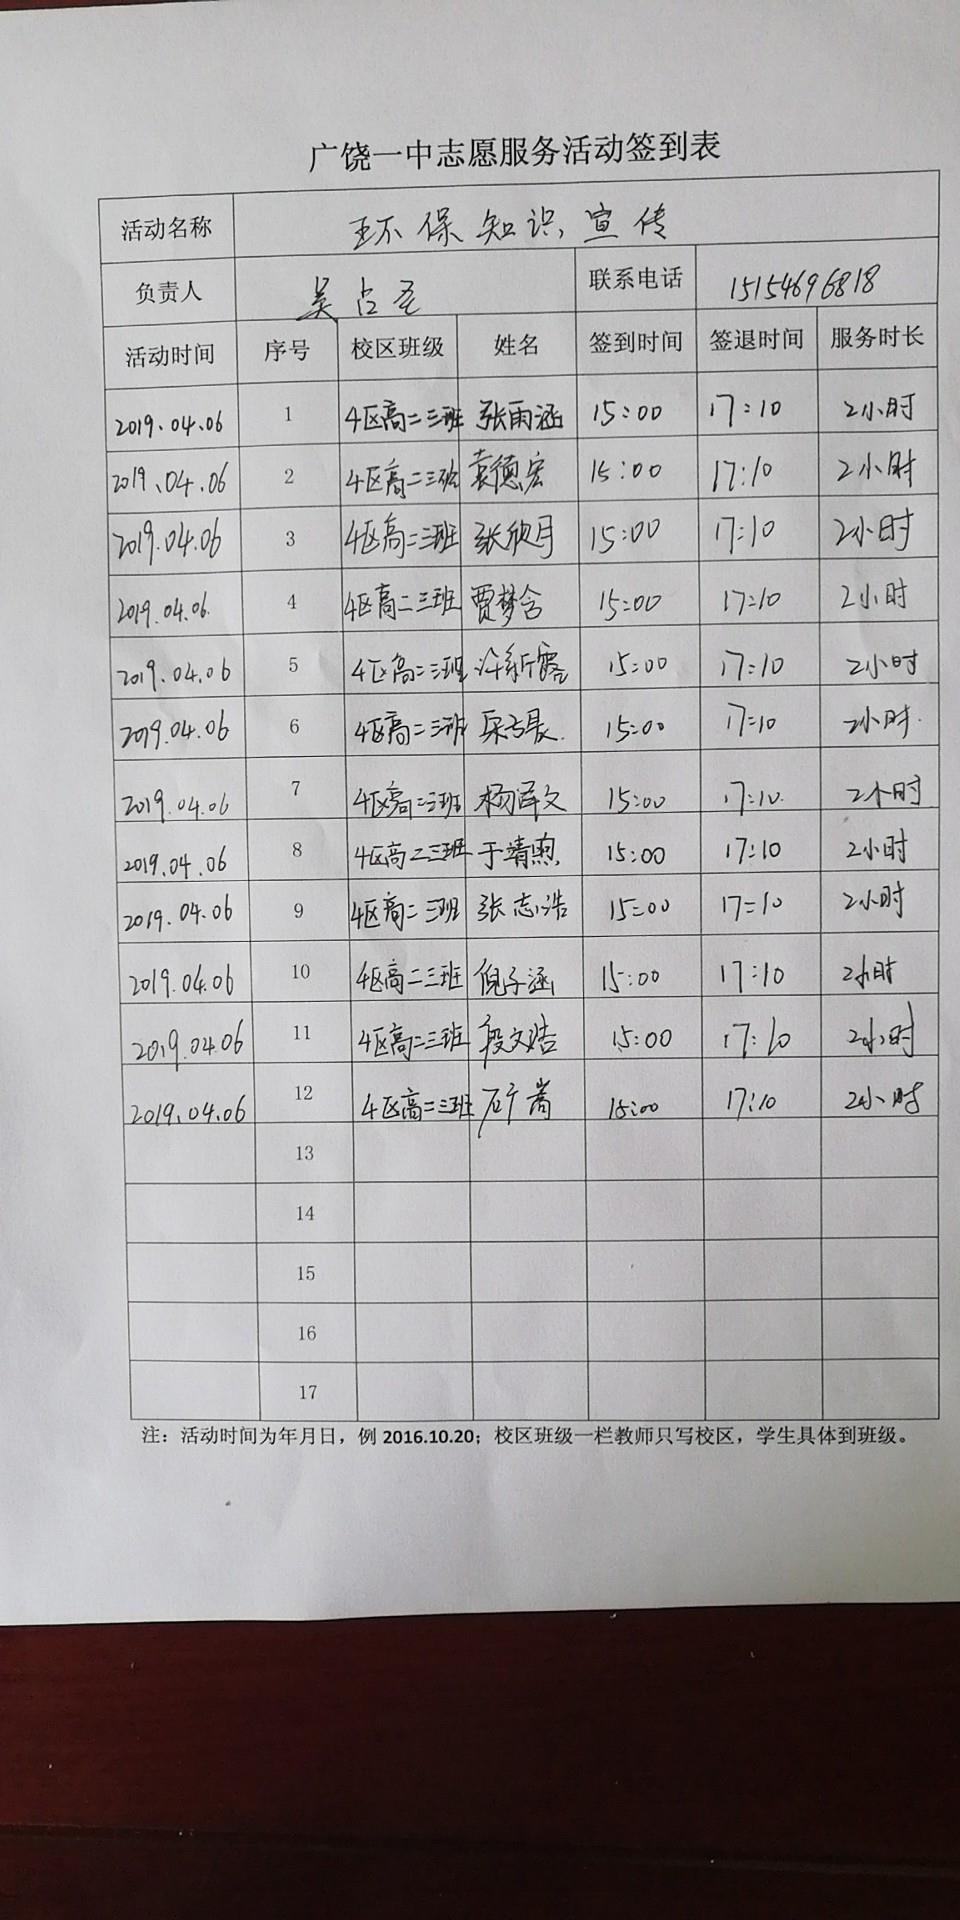 广饶一中志愿服务活动签到表
活动名称 环保知识宣传
负责人 吴占圣 联系电话 15154696818
活动时间 序号 校区班级 姓名 签到时间 签退时间 服务时长
2019.04.06 1 4区高二三班 张雨涵 15:00 17:10 2小时
2019.04.06 2 4区高二三班 袁德宏 15:00 17:10 2小时
2019.04.06 3 4区高二三班 张欣月 15:00 17:10 2小时
2019.04.06 4 4区高二三班 贾梦含 15:00 17:10 2小时
2019.04.06 5 4区高二三班 许新露 15:00 17:10 2小时
2019.04.06 6 4区高二三班 15:00 17:10 2小时
2019.04.06 7 4区高二三班 杨泽文 15:00 17:10 2小时
2019.04.06 8 4区高二三班 于靖 15:00 17:10 2小时
2019.04.06 9 4区高二三班 张志浩 15:00 17:10 2小时
2019.04.06 10 4区高二三班 倪子涵 15:00 17:10 2小时
2019.04.06 11 4区高二三班 段文浩 15:00 17:10 2小时
2019.04.06 12 4区高二三班 15:00 17:10 2小时
13
14
15
16
17
注：活动时间为年月日，例 2016.10.20；校区班级一栏教师只写校区，学生具体到班级。